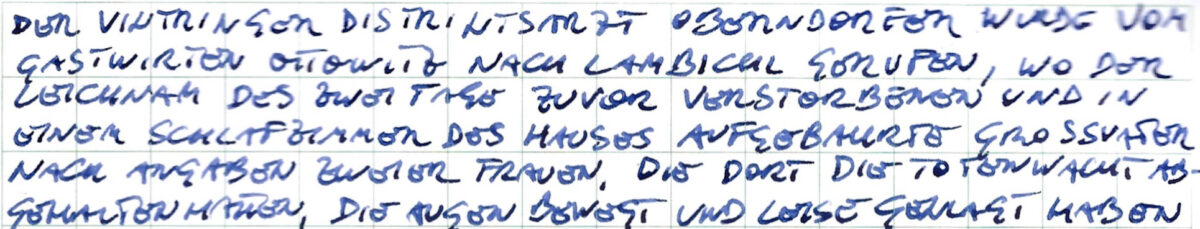 DER VIKTRINGER DISTRIKTSARZT OBERNDORFER WURDE VOM
GASTWIRTEN OTTOWITZ NACH LAMBICHL GERUFEN, WO DER
LEICHNAM DES ZWEI TAGE ZUVOR VERSTORBENEN UND IN
EINEM SCHLAFZIMMER DES HAUSES AUFGEBAHRTE GROSSVATER
NACH ANGABEN ZWEIER FRAUEN, DIE DORT DIE TOTENWACHT AB-
GEHALTEN HATTEN, DIE AUGEN BEWEGT UND LEISE GEKLAGT HABEN